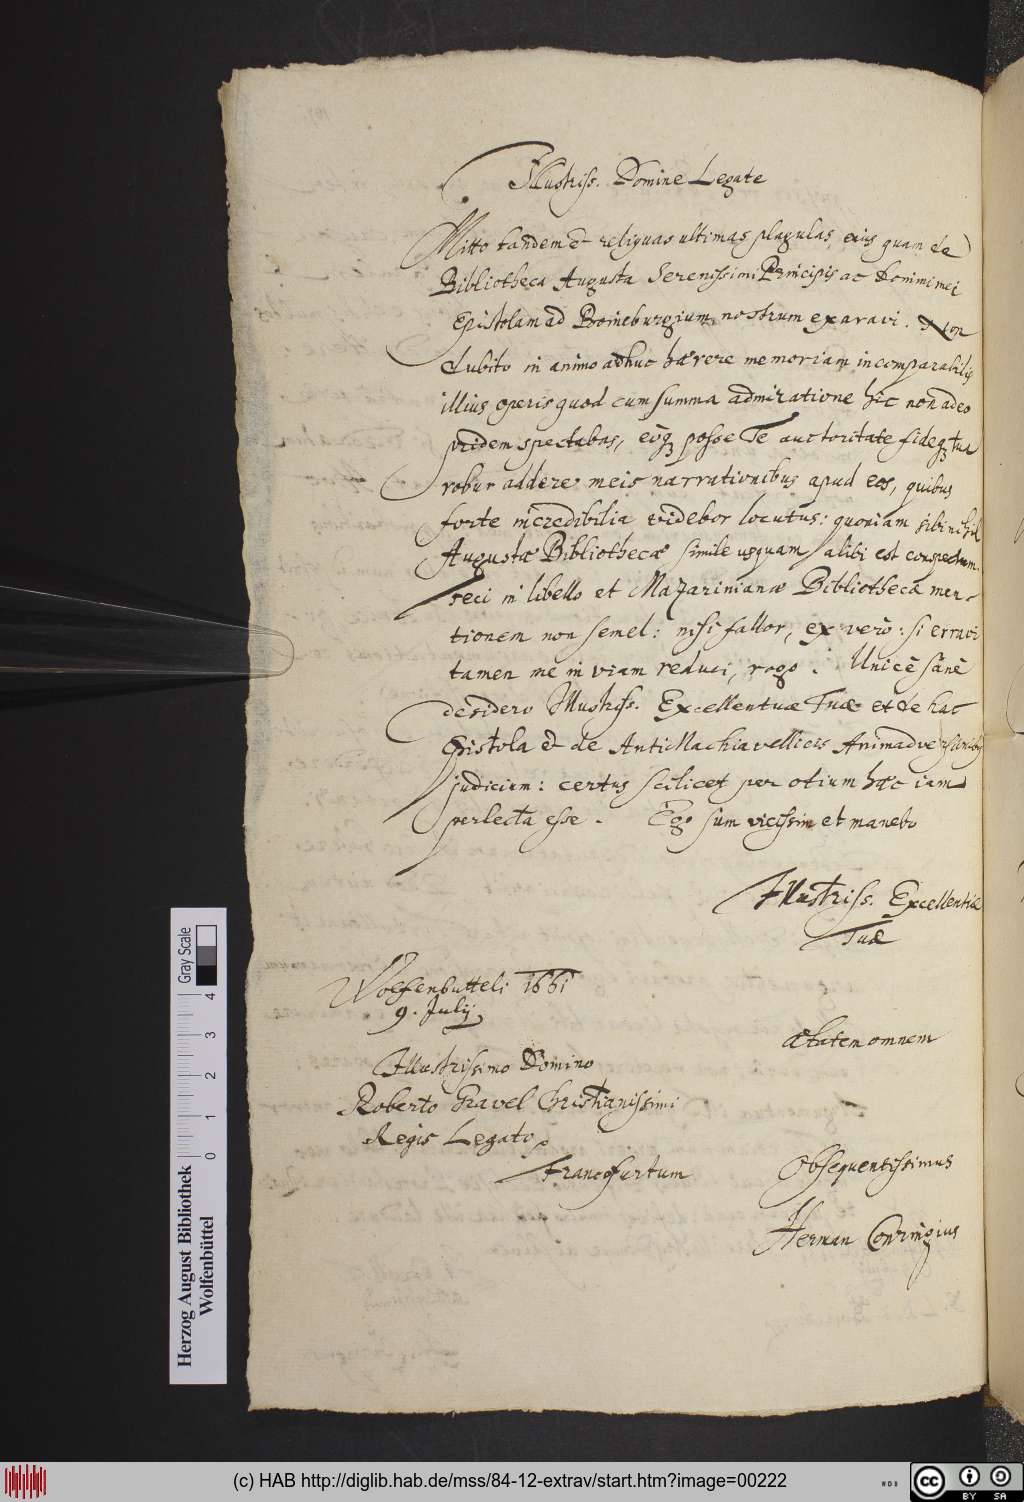 Illustriss. Domine Legate
Mitto tandem et reliquas ultimas plagulas, eius quam de
Bibliotheca Augusta Serenissimi Principis ac Domini mei
Epistolam ad Boineburgium nostrum exaravi. Non
dubito in animo adhuc hærere memoriam incomparabilis
illius operis quod cum summa admiratione hic non adeo
pridem spectabas, eoq posse Te auctoritate fideq tua
robur addere meis narrationibus apud eos, quibus
forte incredibilia videbor locutus: quoniam sibi nihil
Augustæ Bibliothecæ simile usquam alibi est conspectum.
Feci in libello et Mazarinianæ Bibliothecæ men-
tionem non semel: nisi fallor, ex vero: si erravi
tamen me in viam reduci, rogo. Unicè sanè
desidero Illustriss. Excellentiæ Tuæ et de hac
Epistola et de AntiMachiavellicis Animadversionibus
judicium: certus scilicet per otium hæc iam
perlecta esse. Ego sum vicissim et manebo
Illustriss. Excellentiæ
Tuæ
Wolfenbutteli 1661
9. Julij
ætatem omnem
Illustrissimo Domino
Roberto Gravel Christianissimi
Regis Legato
Francofurtum
Obsequentissimus
Herman Conringius
Herzog August Bibliothek
Wolfenbüttel
0 1 2 3 4
Gray Scale
(c) HAB http://diglib.hab.de/mss/84-12-extrav/start.htm?image=00222
cc BY SA